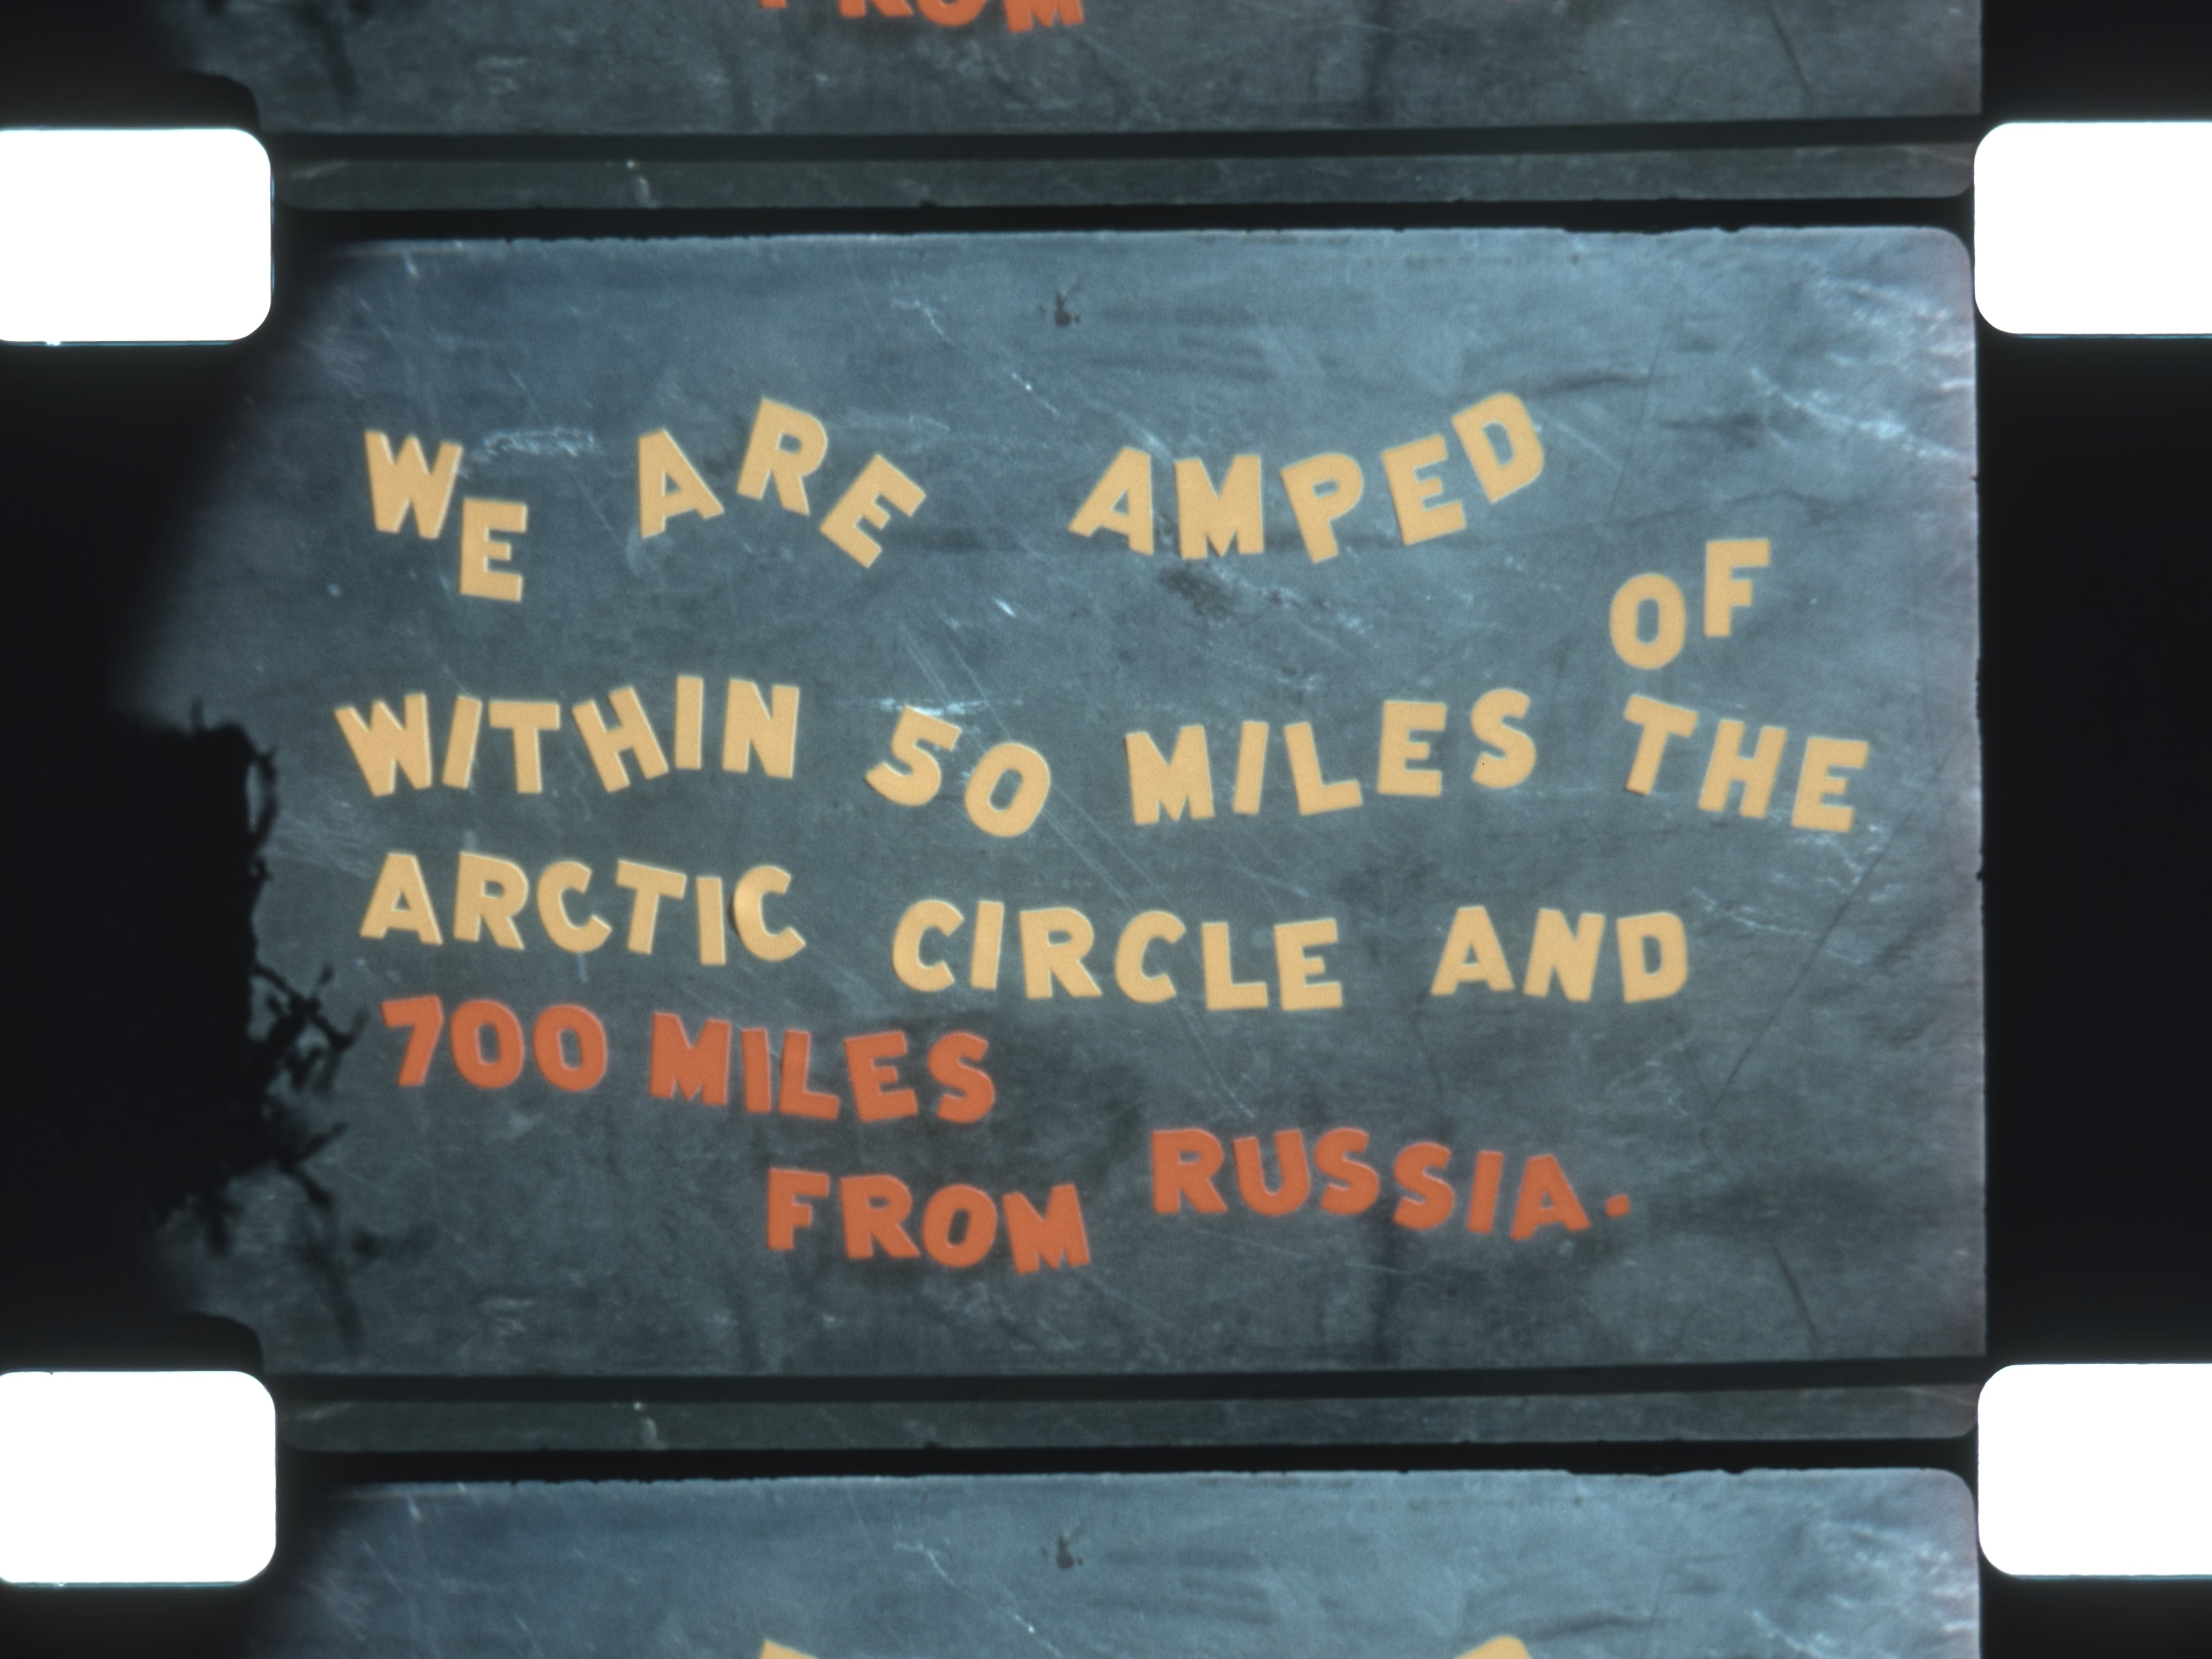 FROM
WE ARE AMPED
OF
WITHIN 50 MILES THE
ARCTIC CIRCLE AND
700 MILES
FROM RUSSIA.